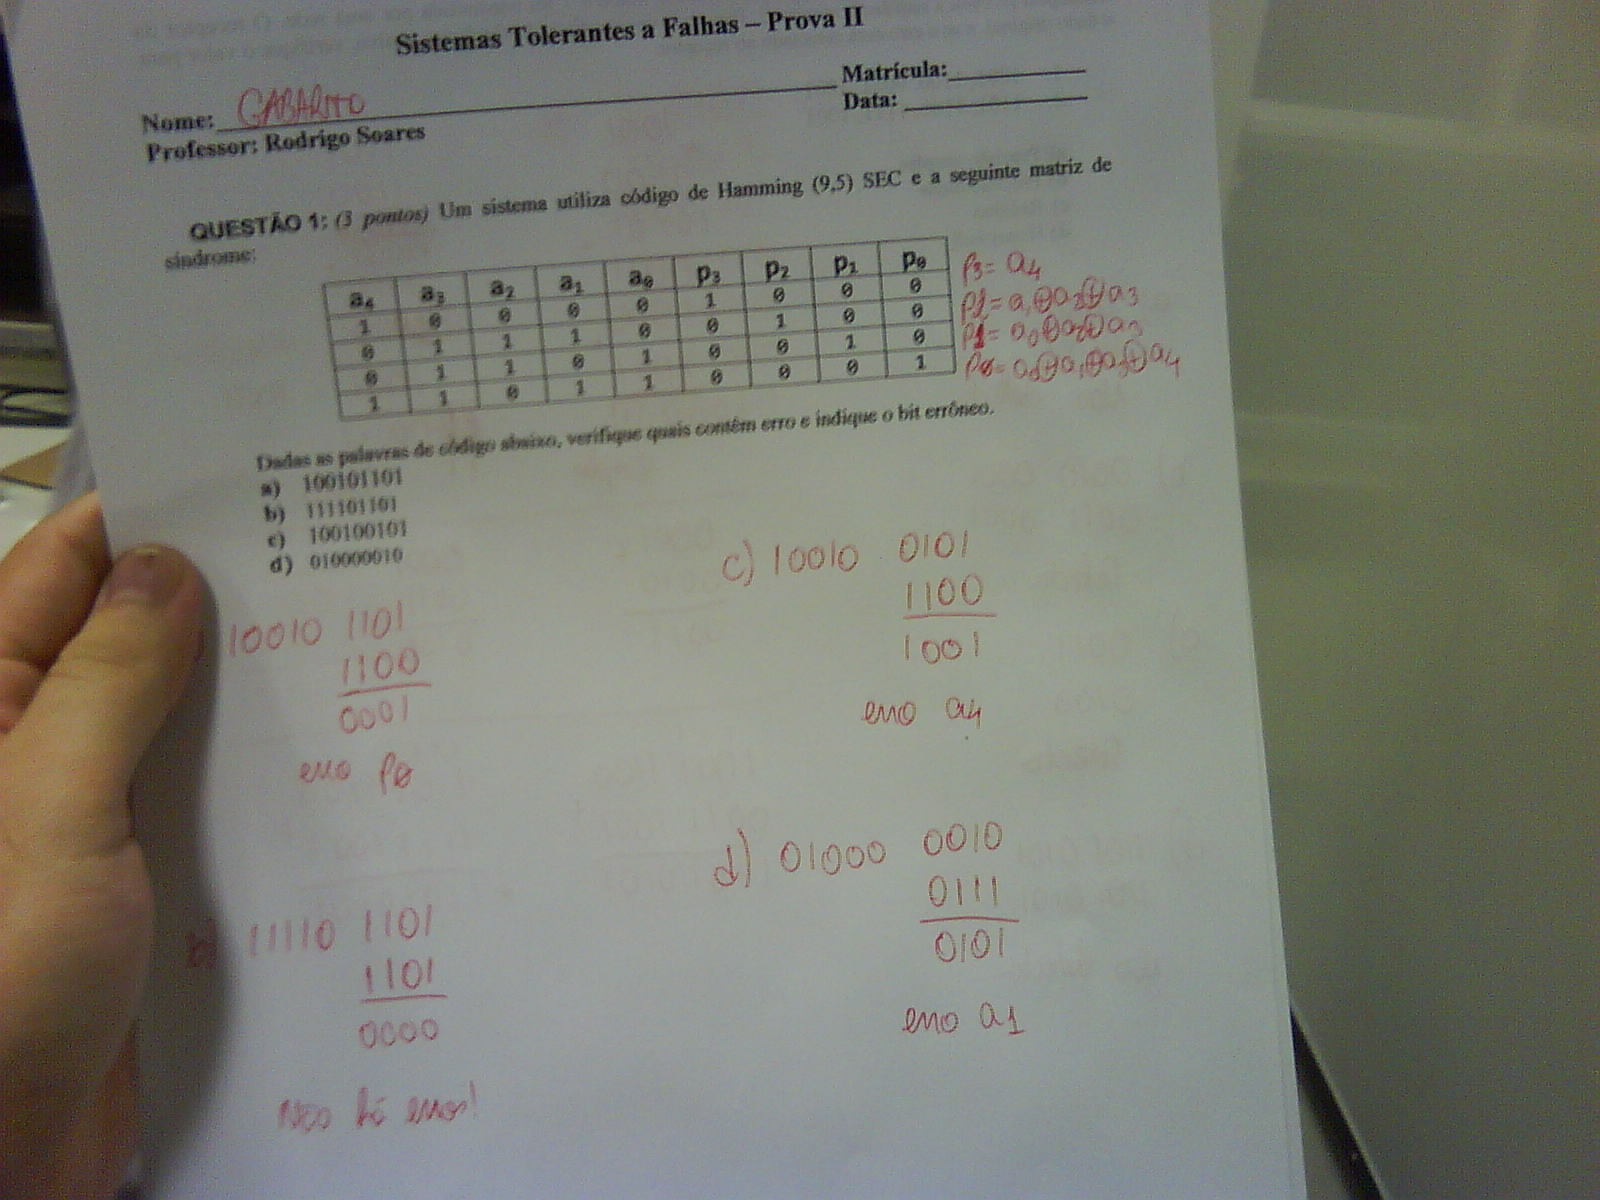 Sistemas Tolerantes a Falhas – Prova II
Nome: GABARITO Matrícula:
Data:
Professor: Rodrigo Soares
QUESTÃO 1: (3 pontos) Um sistema utiliza código de Hamming (9,5) SEC e a seguinte matriz de
síndrome:
a4 a3 a2 a1 a0 p3 p2 p1 p0
1 0 0 0 0 1 0 0 0
0 1 1 1 0 0 1 0 0
0 1 1 0 1 0 0 1 0
1 1 0 1 1 0 0 0 1
p3 = a4
p2 = a1⊕a2⊕a3
p1 = a0⊕a2⊕a3
p0 = a0⊕a1⊕a3⊕a4
Dadas as palavras de código abaixo, verifique quais contêm erro e indique o bit errôneo.
a) 100101101
b) 111101101
c) 100100101
d) 010000010
10010 1101
1100
0001
erro p0
b) 11110 1101
1101
0000
Não há erros!
c) 10010 0101
1100
1001
erro a4
d) 01000 0010
0111
0101
erro a1